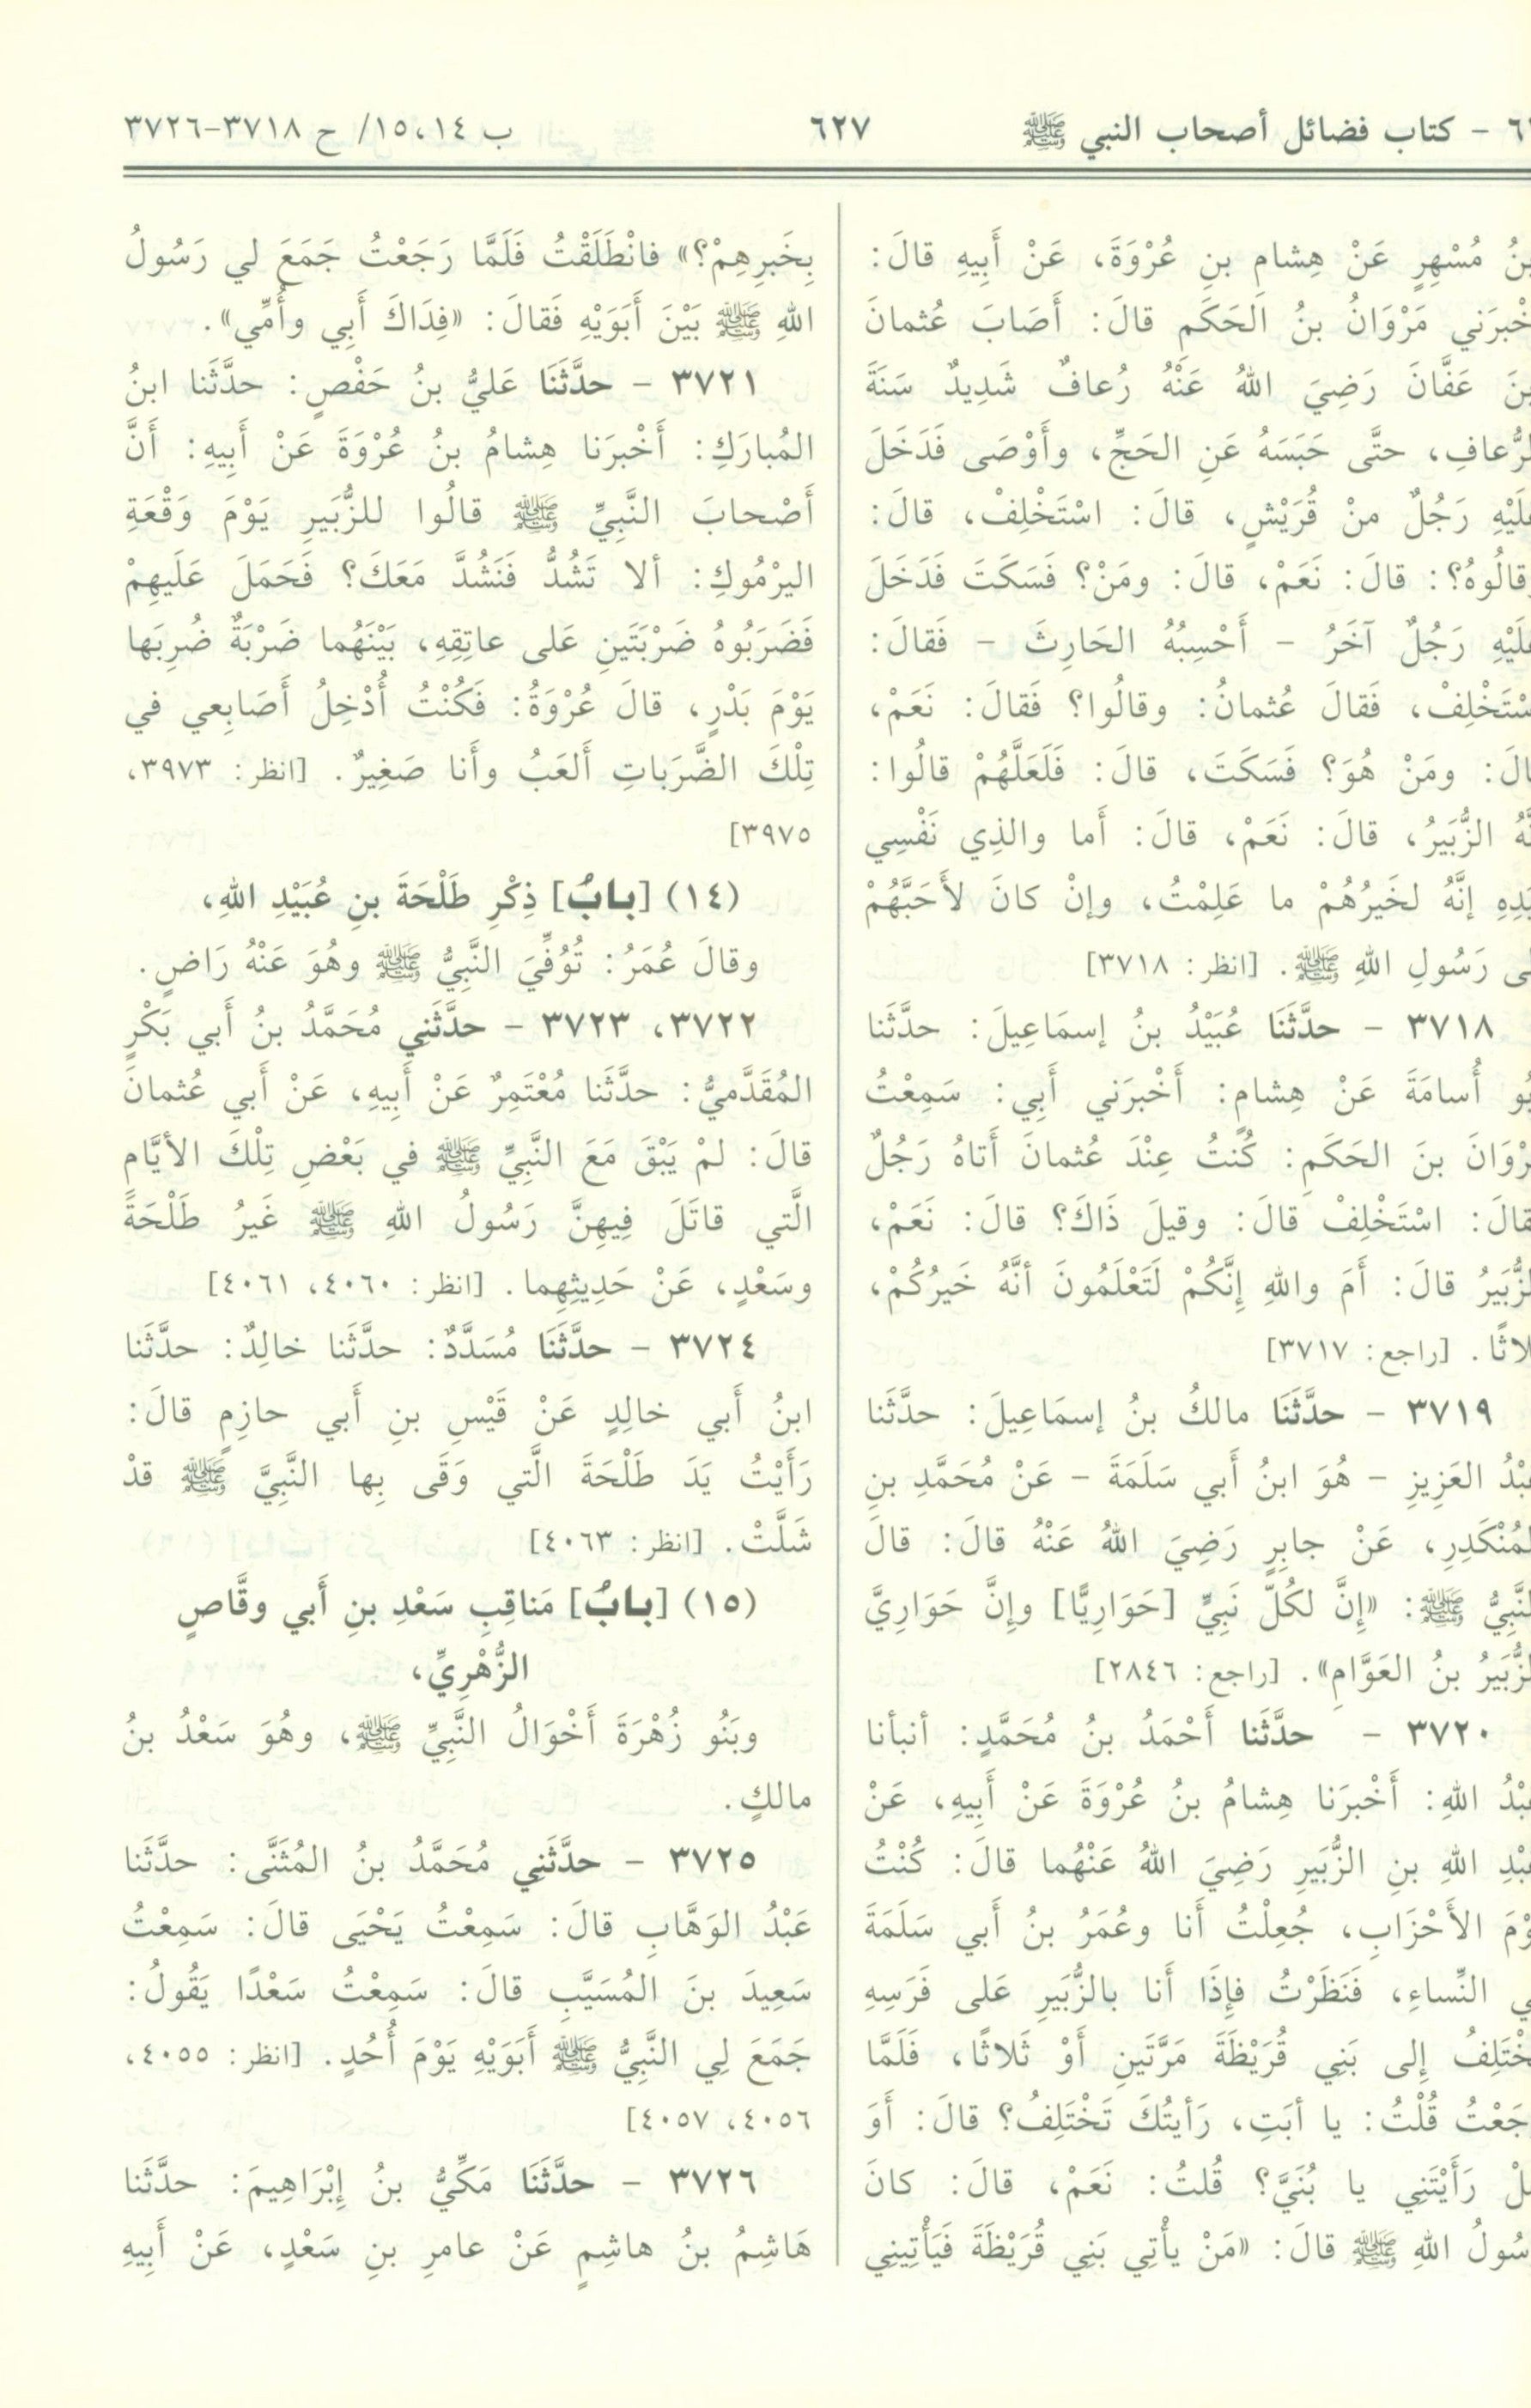 - كتاب فضائل أصحاب النبي ﷺ
٦٢٧
ب ١٤،١٥/ ح ٣٧١٨-٣٧٢٦
مُسْهِرٍ عَنْ هِشامِ بنِ عُرْوَةَ، عَنْ أَبِيهِ قالَ:
مَرْوَانُ بنُ الَحَكَمِ قالَ: أَصَابَ عُثمانَ
عَفَّانَ رَضِيَ اللهُ عَنْهُ رُعافٌ شَدِيدٌ سَنَةَ
حتَّى حَبَسَهُ عَنِ الحَجِّ، وأَوْصَى فَدَخَلَ
رَجُلٌ منْ قُرَيْشٍ، قالَ: اسْتَخْلِفْ، قالَ:
قالَ: نَعَمْ، قالَ: ومَنْ؟ فَسَكَتَ فَدَخَلَ
رَجُلٌ آخَرُ - أَحْسِبُهُ الحَارِثَ - فَقالَ:
فَقالَ عُثمانُ: وقالُوا؟ فَقالَ: نَعَمْ،
ومَنْ هُوَ؟ فَسَكَتَ، قالَ: فَلَعَلَّهُمْ قالُوا:
الزُّبَيرُ، قالَ: نَعَمْ، قالَ: أَما والذِي نَفْسِي
إنَّهُ لخَيرُهُمْ ما عَلِمْتُ، وإنْ كانَ لأَحَبَّهُمْ
رَسُولِ اللهِ ﷺ. [انظر: ٣٧١٨]
٣٧١٨ - حدَّثَنَا عُبَيْدُ بنُ إسمَاعِيلَ: حدَّثَنا
أُسامَةَ عَنْ هِشامٍ: أَخْبرَني أَبِي: سَمِعْتُ
بنَ الحَكَمِ: كُنتُ عِنْدَ عُثمانَ أَتاهُ رَجُلٌ
اسْتَخْلِفْ قالَ: وقيلَ ذَاكَ؟ قالَ: نَعَمْ،
قالَ: أَمَ واللهِ إِنَّكُمْ لَتَعْلَمُونَ أنَّهُ خَيرُكُمْ،
[راجع: ٣٧١٧]
٣٧١٩ - حدَّثَنَا مالكُ بنُ إسمَاعِيلَ: حدَّثَنا
العَزِيزِ - هُوَ ابنُ أَبي سَلَمَةَ - عَنْ مُحَمَّدِ بنِ
عَنْ جابِرٍ رَضِيَ اللهُ عَنْهُ قالَ: قالَ
ﷺ: «إِنَّ لكُلِّ نَبِيٍّ [حَوَارِيًّا] وإِنَّ حَوَارِيَّ
بنُ العَوَّامِ». [راجع: ٢٨٤٦]
٣٧٢٠ - حدَّثَنا أَحْمَدُ بنُ مُحَمَّدٍ: أنبأنا
اللهِ: أَخْبرَنا هِشامُ بنُ عُرْوَةَ عَنْ أَبِيهِ، عَنْ
اللهِ بنِ الزُّبَيرِ رَضِيَ اللهُ عَنْهُما قالَ: كُنْتُ
الأَحْزَابِ، جُعِلْتُ أَنا وعُمَرُ بنُ أَبي سَلَمَةَ
النِّساءِ، فَنَظَرْتُ فإِذَا أَنا بالزُّبَيرِ عَلى فَرَسِهِ
إِلى بَنِي قُرَيْظَةَ مَرَّتَينِ أَوْ ثَلاثًا، فَلَمَّا
قُلْتُ: يا أبَتِ، رَأيتُكَ تَخْتَلِفُ؟ قالَ: أَوَ
رَأَيْتَنِي يا بُنَيَّ؟ قُلتُ: نَعَمْ، قالَ: كانَ
اللهِ ﷺ قالَ: «مَنْ يأْتِي بَنِي قُرَيْظَةَ فَيَأْتِينِي
بِخَبرِهِمْ؟» فانْطَلَقْتُ فَلَمَّا رَجَعْتُ جَمَعَ لي رَسُولُ
اللهِ ﷺ بَيْنَ أَبَوَيْهِ فَقالَ: «فِدَاكَ أَبِي وأُمِّي».
٣٧٢١ - حدَّثَنَا عَليُّ بنُ حَفْصٍ: حدَّثَنا ابنُ
المُبارَكِ: أَخْبرَنا هِشامُ بنُ عُرْوَةَ عَنْ أَبِيهِ: أَنَّ
أَصْحابَ النَّبِيِّ ﷺ قالُوا للزُّبَيرِ يَوْمَ وَقْعَةِ
اليرْمُوكِ: ألا تَشُدُّ فَنَشُدَّ مَعَكَ؟ فَحَمَلَ عَلَيهِمْ
فَضَرَبُوهُ ضَرْبَتَينِ عَلى عاتِقِهِ، بَيْنَهُما ضَرْبَةٌ ضُرِبَها
يَوْمَ بَدْرٍ، قالَ عُرْوَةُ: فَكُنْتُ أُدْخِلُ أَصَابِعي في
تِلْكَ الضَّرَباتِ أَلعَبُ وأَنا صَغِيرٌ. [انظر: ٣٩٧٣،
٣٩٧٥]
(١٤) [بابُ] ذِكْرِ طَلْحَةَ بنِ عُبَيْدِ اللهِ،
وقالَ عُمَرُ: تُوُفِّيَ النَّبِيُّ ﷺ وهُوَ عَنْهُ رَاضٍ.
٣٧٢٢، ٣٧٢٣ - حدَّثَنِي مُحَمَّدُ بنُ أَبي بَكْرٍ
المُقَدَّميُّ: حدَّثَنا مُعْتَمِرٌ عَنْ أَبِيهِ، عَنْ أَبي عُثمانَ
قالَ: لمْ يَبْقَ مَعَ النَّبِيِّ ﷺ في بَعْضِ تِلْكَ الأيَّامِ
الَّتي قاتَلَ فِيهِنَّ رَسُولُ اللهِ ﷺ غَيرُ طَلْحَةَ
وسَعْدٍ، عَنْ حَدِيثِهِما. [انظر: ٤٠٦٠، ٤٠٦١]
٣٧٢٤ - حدَّثَنَا مُسَدَّدٌ: حدَّثَنا خالِدٌ: حدَّثَنا
ابنُ أَبي خالِدٍ عَنْ قَيْسِ بنِ أَبي حازِمٍ قالَ:
رَأَيْتُ يَدَ طَلْحَةَ الَّتي وَقَى بِها النَّبِيَّ ﷺ قدْ
شَلَّتْ. [انظر: ٤٠٦٣]
(١٥) [بابُ] مَناقِبِ سَعْدِ بنِ أَبي وقَّاصٍ
الزُّهْرِيِّ،
وبَنُو زُهْرَةَ أَخْوَالُ النَّبِيِّ ﷺ، وهُوَ سَعْدُ بنُ
مالكٍ.
٣٧٢٥ - حدَّثَنِي مُحَمَّدُ بنُ المُثَنَّى: حدَّثَنا
عَبْدُ الوَهَّابِ قالَ: سَمِعْتُ يَحْيَى قالَ: سَمِعْتُ
سَعِيدَ بنَ المُسَيَّبِ قالَ: سَمِعْتُ سَعْدًا يَقُولُ:
جَمَعَ لِي النَّبِيُّ ﷺ أَبَوَيْهِ يَوْمَ أُحُدٍ. [انظر: ٤٠٥٥،
٤٠٥٦، ٤٠٥٧]
٣٧٢٦ - حدَّثَنَا مَكِّيُّ بنُ إِبْرَاهِيمَ: حدَّثَنا
هَاشِمُ بنُ هاشِمٍ عَنْ عامرِ بنِ سَعْدٍ، عَنْ أَبِيهِ